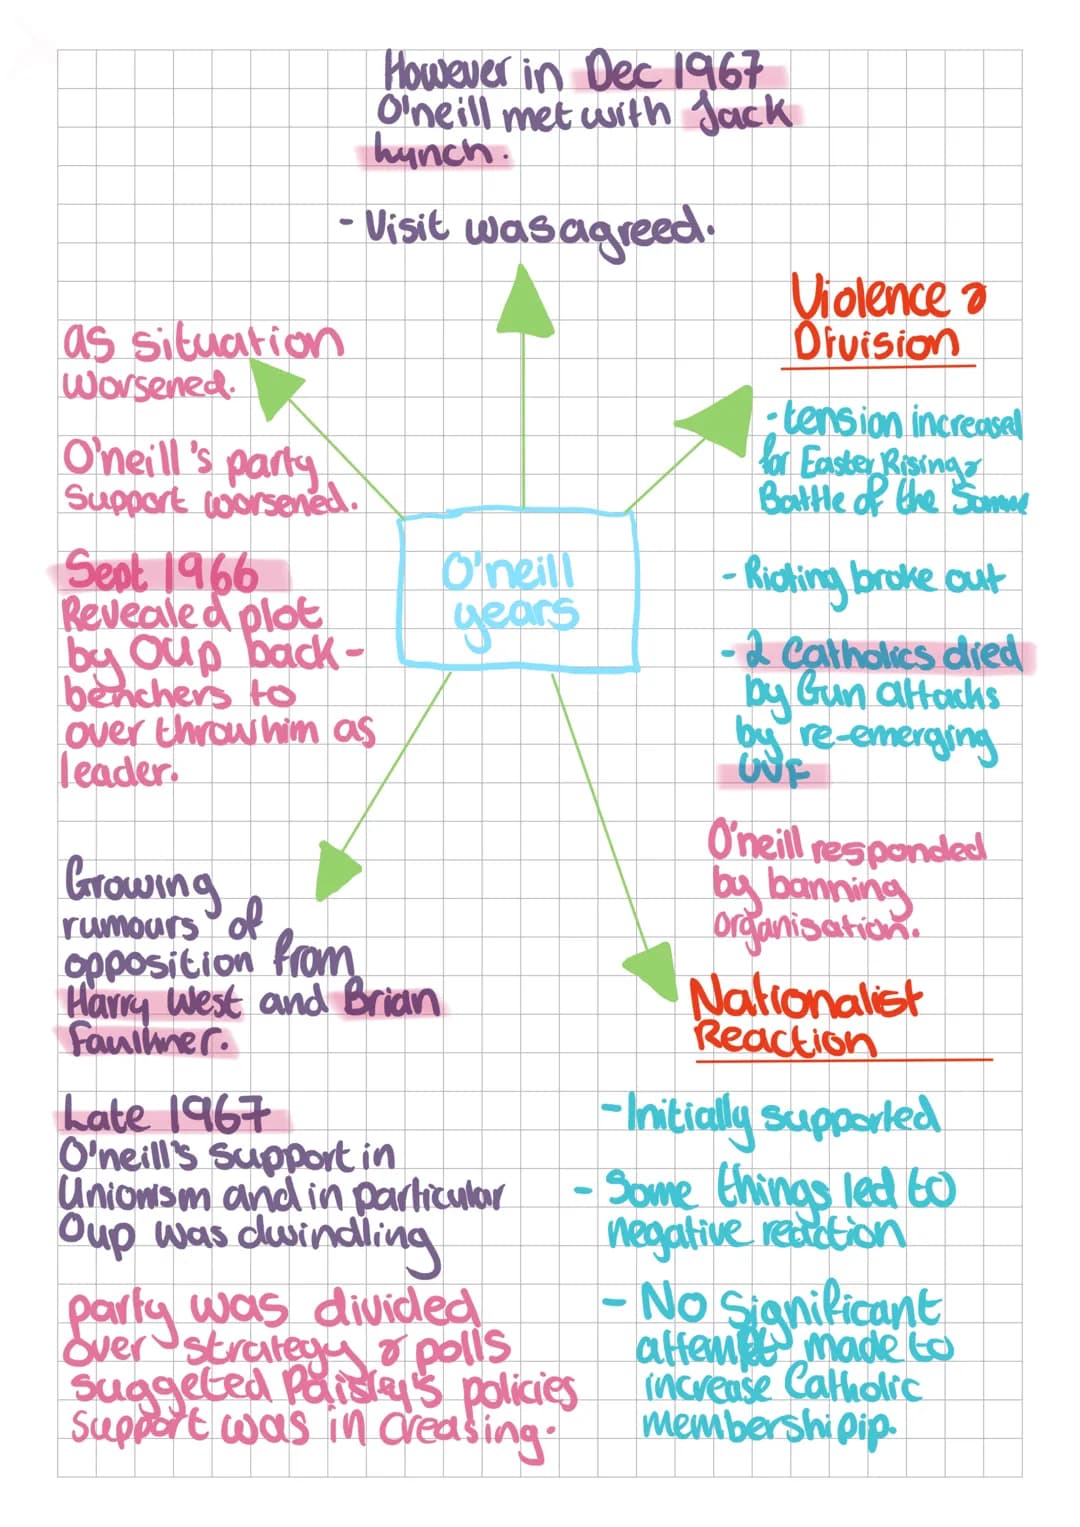 However in Dec 1967
O'neill met with Jack
Lynch.
- Visit was agreed.
as situation
worsened.
O'neill's party
support worsened.
Sept 1966
Revealed plot
by OUP back-
benchers to
over throw him as
leader.
Growing
rumours of
opposition from
Harry West and Brian
Faulkner.
Late 1967
O'neill's support in
Unionism and in particular
OUP was dwindling
party was divided
over strategy & polls
suggeted Paisley's policies
support was in creasing.
O'neill
years
Violence &
Division
- tension increased
for Easter Rising &
Battle of the Somme
- Rioting broke out
- 2 Catholics died
by Gun attacks
by re-emerging
UVF
O'neill responded
by banning
organisation.
Nationalist
Reaction
- Initially supported
- Some things led to
negative reaction
- No significant
attempt made to
increase Catholic
membershipip.